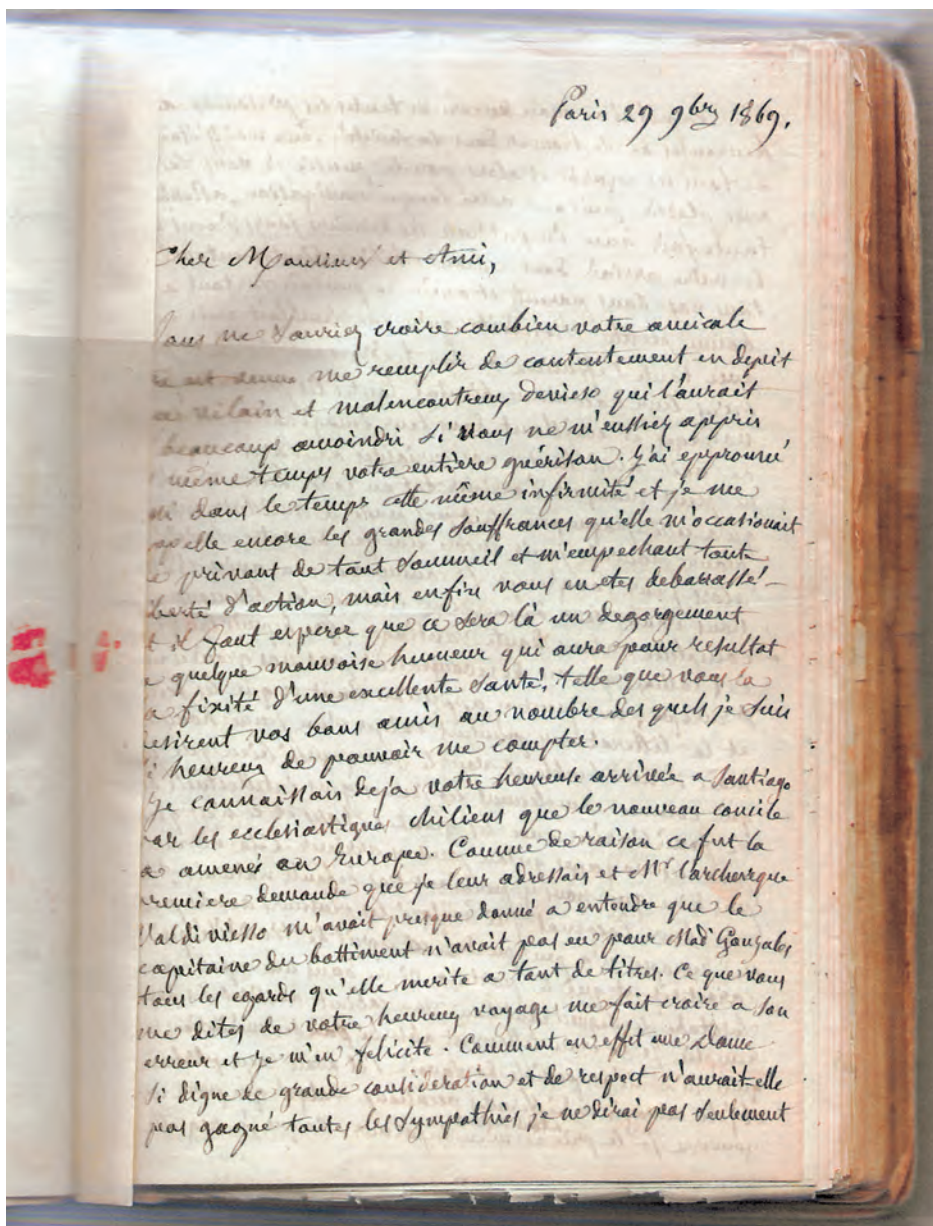 Paris 29 9bre 1869.
Cher Monsieur et Ami,
ous ne sauriez croire combien votre amicale
est venue me remplir de contentement en depit
vilain et malencontreux qui l'aurait
beaucoup amoindri si vous ne m'eussiez appris
même temps votre entière guérison. J'ai epprouvé
dans le temps cette même infirmité et je me
pelle encore les grandes souffrances qu'elle m'occasionait
e privant de tout sommeil et m'empechant toute
iberté d'action, mais enfin vous en etes debarassé
t il faut esperer que ce sera là un degorgement
e quelque mauvaise humeur qui aura pour resultat
a fixité d'une excellente santé, telle que vous la
desirent vos bons amis au nombre des quels je suis
si heureux de pouvoir me compter.
Je connaissais deja votre heureuse arrivée a Santiago
par les ecclesiastiques chiliens que le nouveau concile
a amenés en Europe. Comme de raison ce fut la
premiere demande que je leur adressais et Mr l'archeveque
Valdiviesso m'avait presque donné a entendre que le
capitaine du battiment n'avait pas eu pour Mad Gonzales
tous les egards qu'elle merite a tant de titres. Ce que vous
me dites de votre heureux voyage me fait croire a son
erreur et je m'en felicite. Comment en effet une Dame
si digne de grande consideration et de respect n'aurait-elle
pas gagné toutes les sympathies, je ne dirai pas seulement